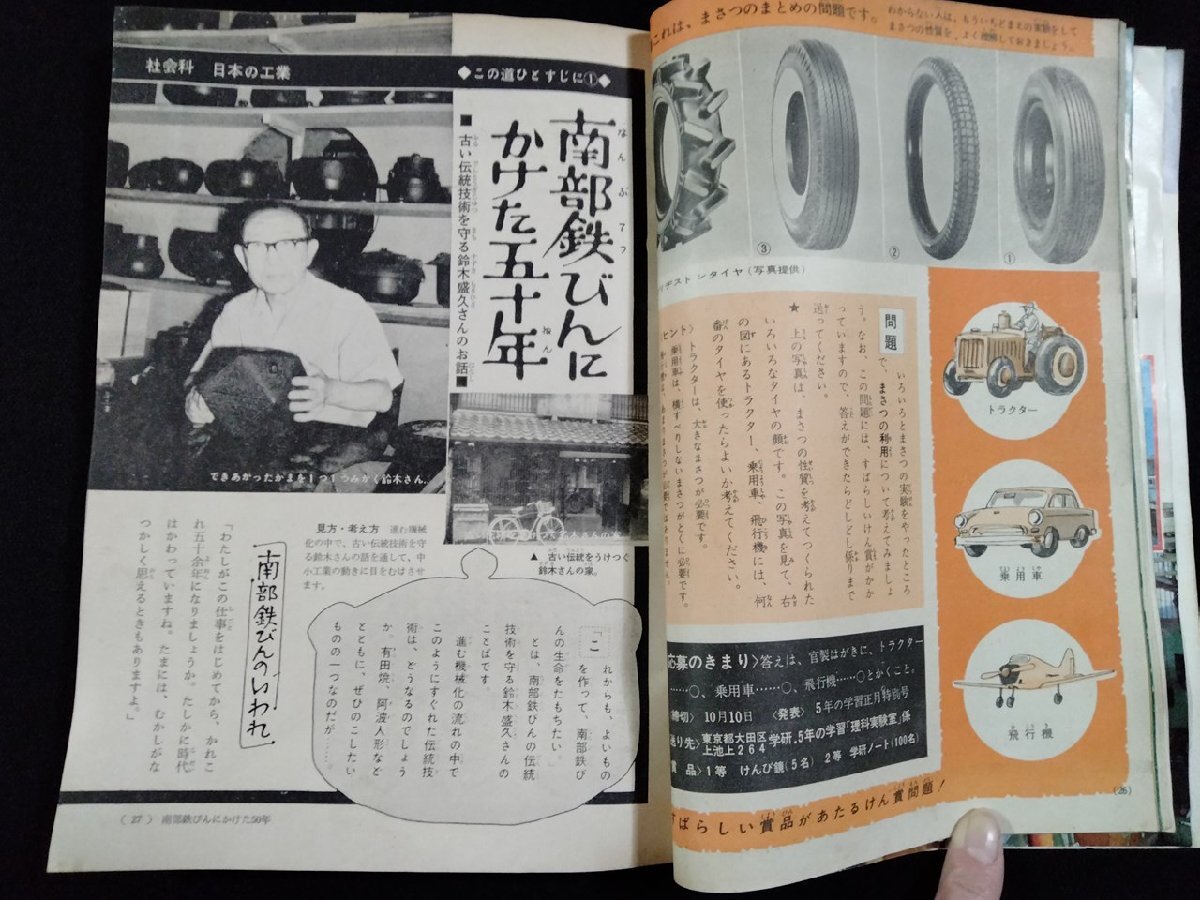 これは、まさつのまとめの問題です。
わからない人は、もういちどまえの実験をして
まさつの性質を、よく理解しておきましょう。
③
②
①
タイヤ(写真提供)
問題
いろいろとまさつの実験をやったところ
で、まさつの利用について考えてみましょ
う。なお、この問題には、すばらしいけん賞がかか
っていますので、答えができたらどしどし係りまで
送ってください。
★上の写真は、まさつの性質を考えてつくられた
いろいろなタイヤの顔です。この写真を見て、右
の図にあるトラクター、乗用車、飛行機には、何
番のタイヤを使ったらよいか考えてください。
トラクターは、大きなまさつが必要です。
乗用車は、横すべりしないまさつがとくに必要です。
トラクター
乗用車
飛行機
応募のきまり〉答えは、官製はがきに、トラクター
……○、乗用車……○、飛行機……○とかくこと。
締切〉10月10日 〈発表〉5年の学習正月特別号
送り先〉東京都大田区上池上264 学研・5年の学習「理科実験室」係
賞品〉1等 けんび鏡(5名) 2等 学研ノート(100名)
すばらしい賞品があたるけん賞問題!
(26)
社会科 日本の工業
◆この道ひとすじに①◆
南部鉄びんに
かけた五十年
■古い伝統技術を守る鈴木盛久さんのお話■
できあがったかまを1つ1つみがく鈴木さん。
▲ 古い伝統をうけつぐ
鈴木さんの家。
見方・考え方 進む機械
化の中で、古い伝統技術を守
る鈴木さんの話を通して、中
小工業の動きに目をむけさせ
ます。
「これからも、よいもの
を作って、南部鉄び
んの生命をたもちたい。」
とは、南部鉄びんの伝統
技術を守る鈴木盛久さんの
ことばです。
進む機械化の流れの中で
このようにすぐれた伝統技
術は、どうなるのでしょう
か。有田焼、阿波人形など
とともに、ぜひのこしたい
ものの一つなのだが……。
南部鉄びんのいわれ
「わたしがこの仕事をはじめてから、かれこ
れ五十余年になりましょうか。たしかに時代
はかわっていますね。たまには、むかしがな
つかしく思えるときもありますよ。」
(27) 南部鉄びんにかけた50年